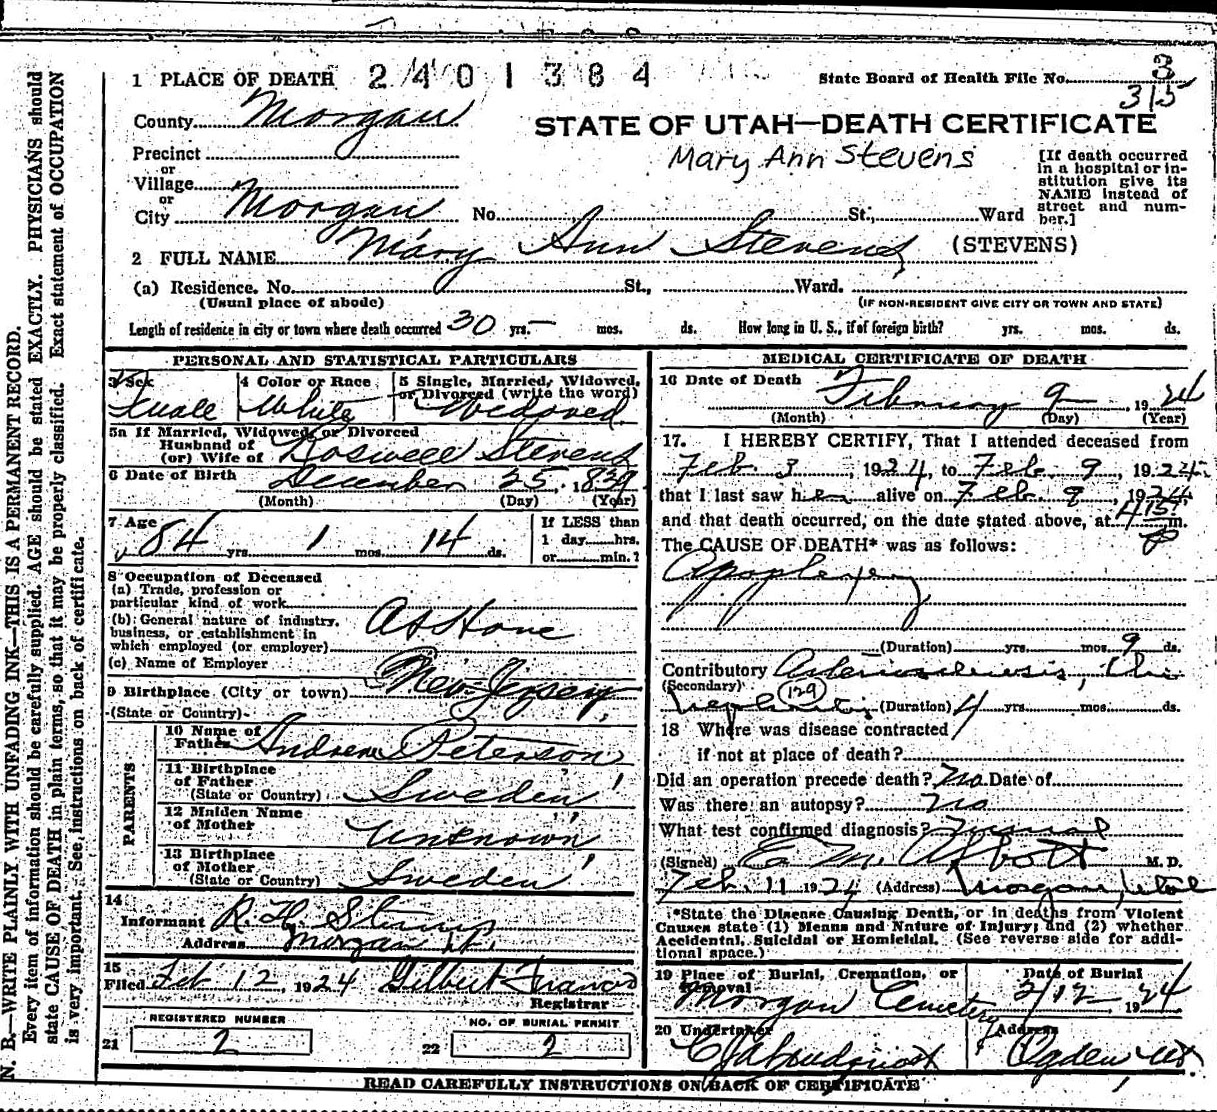 1 PLACE OF DEATH 2401384 State Board of Health File No. 3
315
County Morgan
STATE OF UTAH—DEATH CERTIFICATE
Mary Ann Stevens
Precinct
or
Village
or
City Morgan No. St., Ward
[If death occurred
in a hospital or in-
stitution give its
NAME instead of
street and num-
ber.]
2 FULL NAME Mary Ann Stevens (STEVENS)
(a) Residence. No. St., Ward.
(Usual place of abode) (IF NON-RESIDENT GIVE CITY OR TOWN AND STATE)
Length of residence in city or town where death occurred 30 yrs. — mos. ds. How long in U. S., if of foreign birth? yrs. mos. ds.
PERSONAL AND STATISTICAL PARTICULARS
3 Sex 4 Color or Race 5 Single, Married, Widowed,
or Divorced (write the word)
Female White Widowed.
5a If Married, Widowed, or Divorced
Husband of
(or) Wife of Roswell Stevens
6 Date of Birth December 25, 1839
(Month) (Day) (Year)
7 Age
84 yrs. 1 mos. 14 ds.
If LESS than
1 day hrs.
or min.?
8 Occupation of Deceased
(a) Trade, profession or
particular kind of work
(b) General nature of industry,
business, or establishment in
which employed (or employer)
At Home
(c) Name of Employer
9 Birthplace (City or town) New Jersey,
(State or Country)
PARENTS
10 Name of
Father Andrew Peterson
11 Birthplace
of Father
(State or Country) Sweden
12 Maiden Name
of Mother Unknown
13 Birthplace
of Mother
(State or Country) Sweden
14
Informant R. H.
Address Morgan Ut.
15
Filed Feb 12, 1924 Gilbert Francis
Registrar
REGISTERED NUMBER NO. OF BURIAL PERMIT
21 2 22 2
MEDICAL CERTIFICATE OF DEATH
16 Date of Death February 9 1924
(Month) (Day) (Year)
17. I HEREBY CERTIFY, That I attended deceased from
Feb 3, 1924, to Feb. 9, 1924.
that I last saw her alive on Feb. 9, 1924
and that death occurred, on the date stated above, at 4 15 P m.
The CAUSE OF DEATH* was as follows:
Apoplexy
(Duration) yrs. mos. 9 ds.
Contributory Arteriosclerosis, Chr
(Secondary) (129)
Nephritis (Duration) 4 yrs. mos. ds.
18 Where was disease contracted
if not at place of death?
Did an operation precede death? No. Date of
Was there an autopsy? No
What test confirmed diagnosis?
(Signed) E M. Abbott M. D.
Feb. 11 1924 (Address) Morgan, Utah
*State the Disease Causing Death, or in deaths from Violent
Causes state (1) Means and Nature of Injury; and (2) whether
Accidental, Suicidal or Homicidal. (See reverse side for addi-
tional space.)
19 Place of Burial, Cremation, or
Removal Date of Burial
Morgan Cemetery 2/12 1924
20 Undertaker Address
Ogden, Ut.
READ CAREFULLY INSTRUCTIONS ON BACK OF CERTIFICATE
N. B.—WRITE PLAINLY WITH UNFADING INK—THIS IS A PERMANENT RECORD.
Every item of information should be carefully supplied. AGE should be stated EXACTLY. PHYSICIANS should
state CAUSE OF DEATH in plain terms, so that it may be properly classified. Exact statement of OCCUPATION
is very important. See instructions on back of certificate.